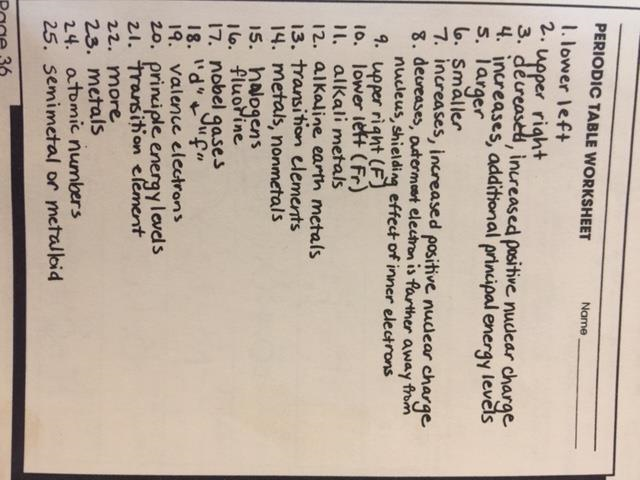 Name
PERIODIC TABLE WORKSHEET
1. lower left
2. upper right
3. decreased, increased positive nuclear charge
4. increases, additional principal energy levels
5. larger
6. smaller
7. increases, increased positive nuclear charge
8. decreases, outermost electron is farther away from
nucleus, shielding effect of inner electrons
9. upper right (F)
10. lower left (Fr)
11. alkali metals
12. alkaline earth metals
13. transition elements
14. metals, nonmetals
15. halogens
16. fluorine
17. nobel gases
18. "d" & "f"
19. valence electrons
20. principle energy levels
21. transition element
22. more
23. metals
24. atomic numbers
25. semimetal or metalloid
Page 36